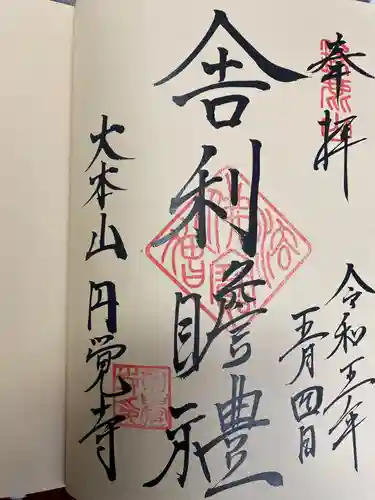 奉拝
令和五年
五月四日
舎利瞻禮
大本山円覚寺